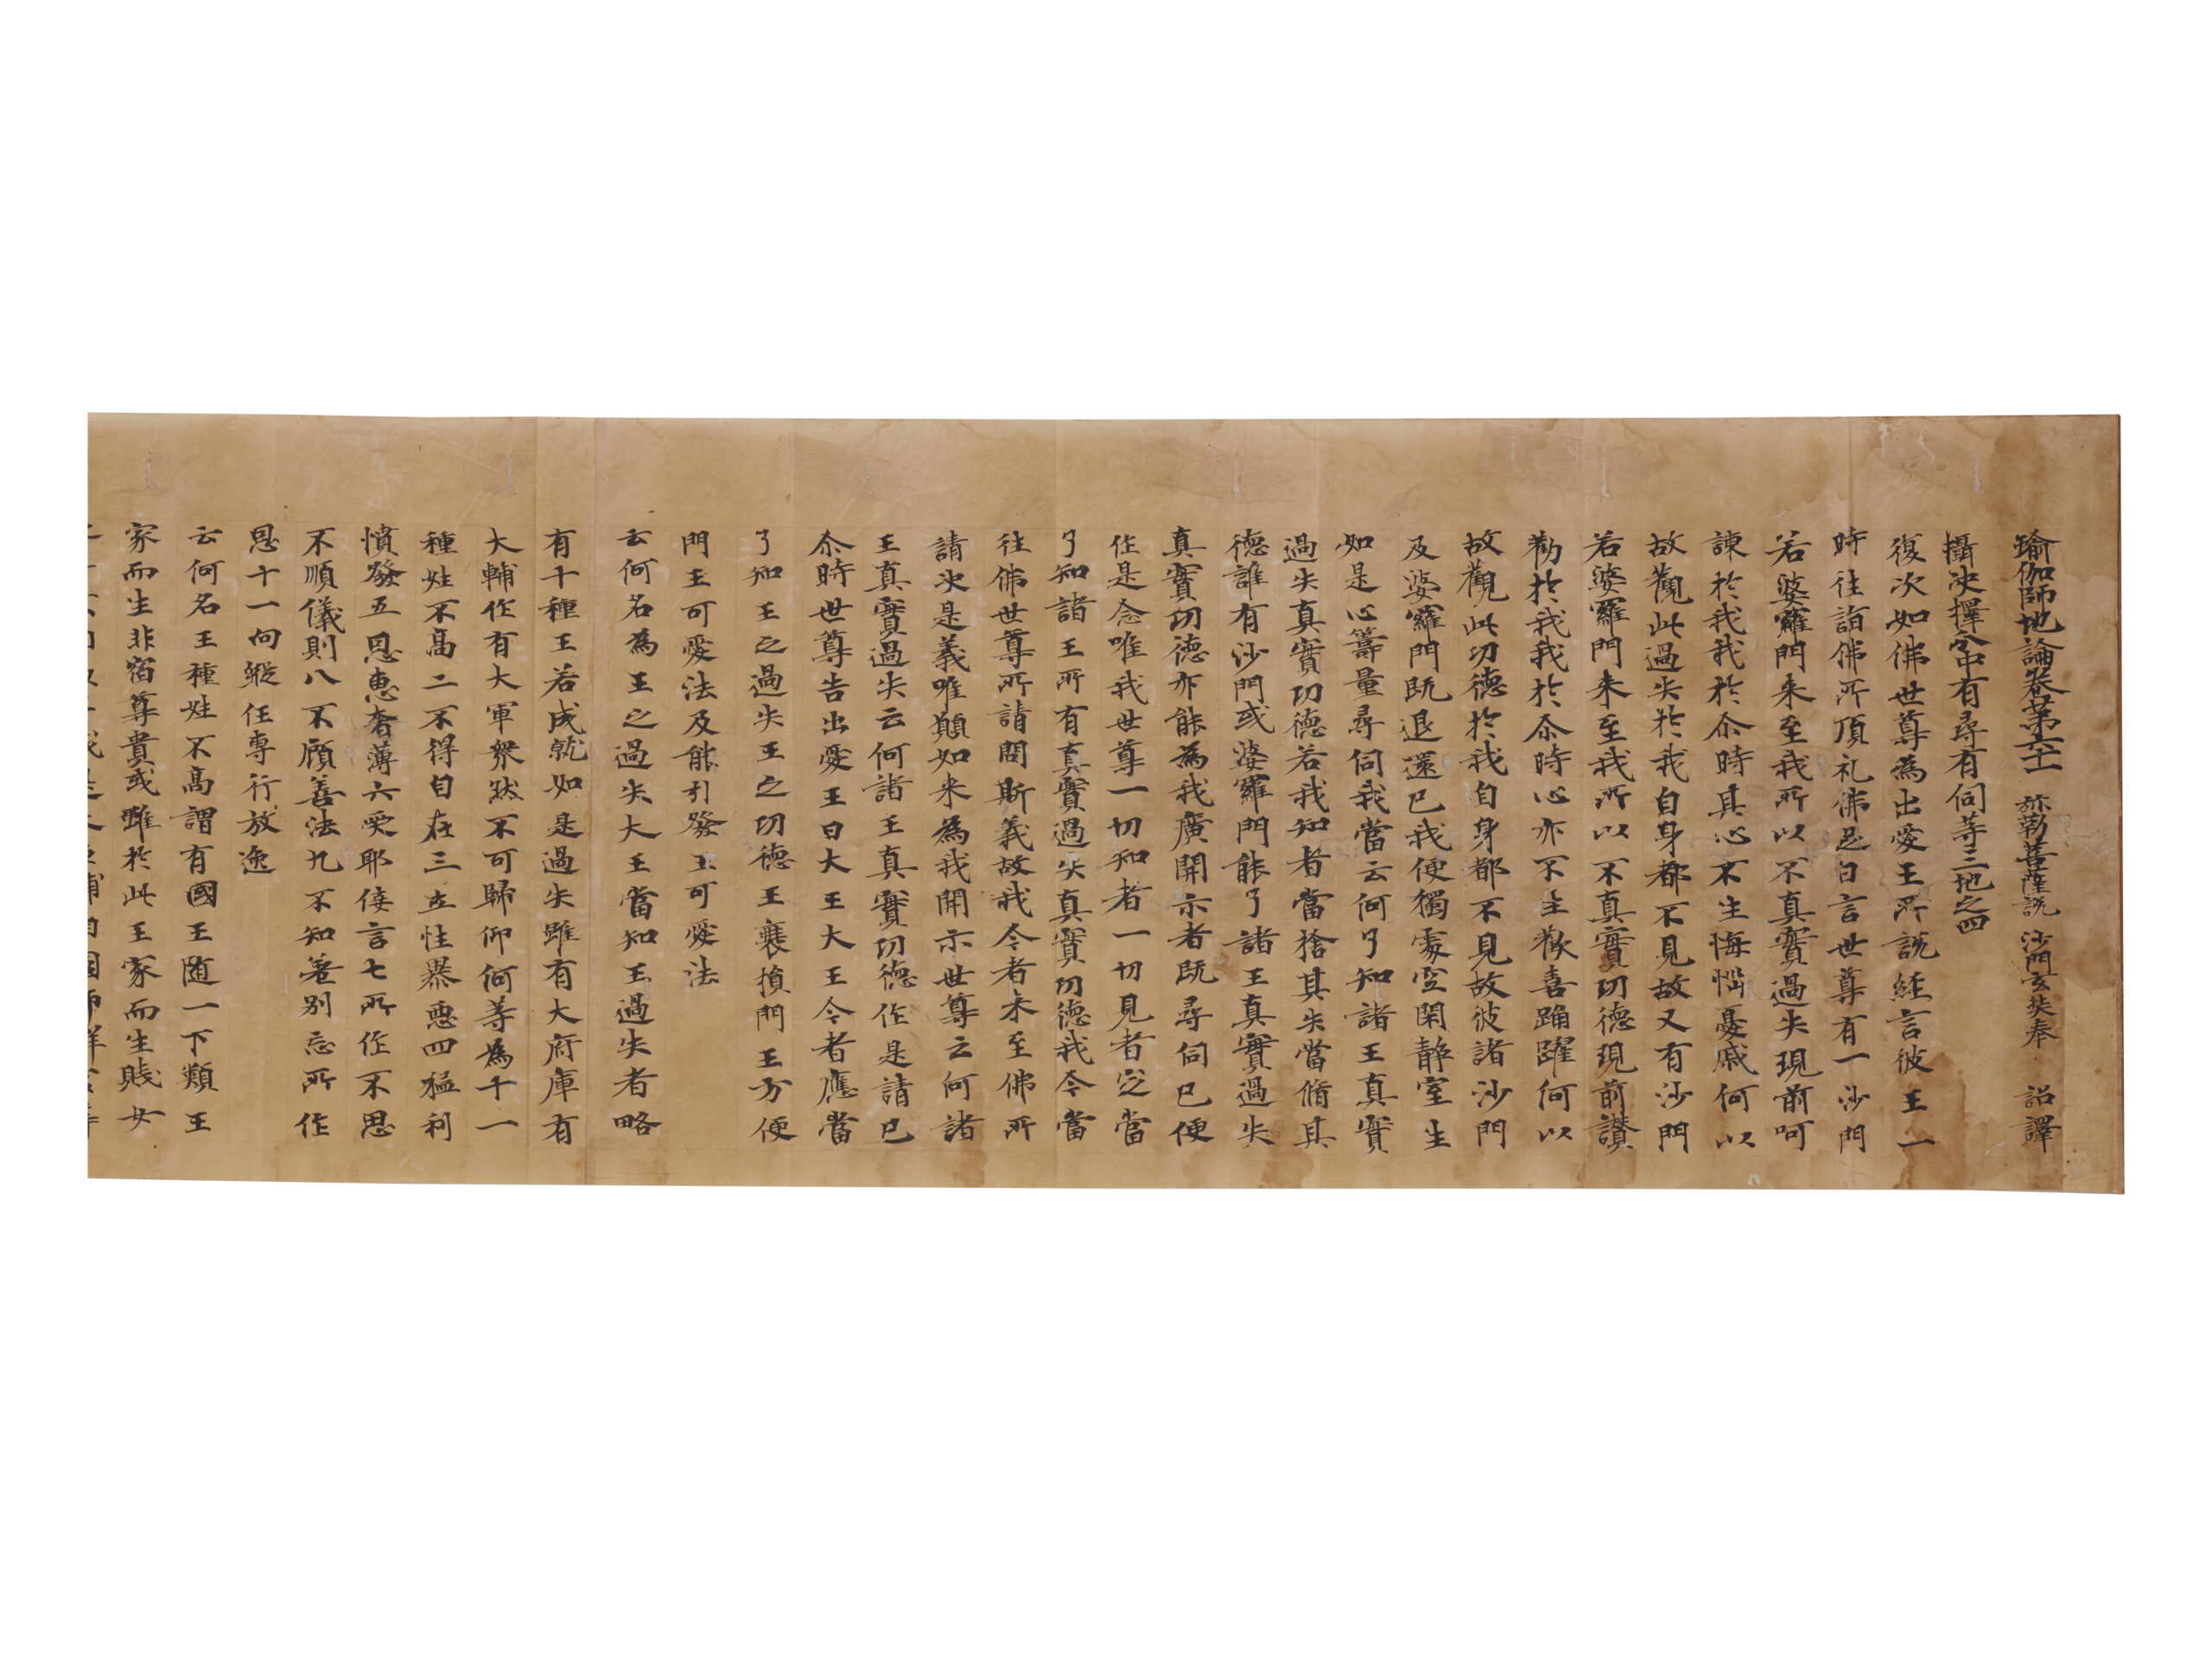 瑜伽師地論卷苐六十一 弥勒菩薩說 沙門玄奘奉 詔譯
攝決擇分中有尋有伺等三地之四
復次如佛世尊為出愛王所說經言彼王一
時往詣佛所頂礼佛足白言世尊有一沙門
若婆羅門来至我所以不真實過失現前呵
諫於我我於尒時其心不生悔惱憂慼何以
故觀此過失於我自身都不見故又有沙門
若婆羅門来至我所以不真實功德現前讃
勸於我我於尒時心亦不生歡喜踊躍何以
故觀此功德於我自身都不見故彼諸沙門
及婆羅門既退還已我便獨處空閑靜室生
如是心籌量尋伺我當云何了知諸王真實
過失真實功德若我知者當捨其失當脩其
德誰有沙門或婆羅門能了諸王真實過失
真實功德亦能為我廣開示者既尋伺已便
作是念唯我世尊一切知者一切見者定當
了知諸王所有真實過失真實功德我今當
往佛世尊所請問斯義故我今者来至佛所
請決是義唯願如来為我開示世尊云何諸
王真實過失云何諸王真實功德作是請已
尒時世尊告出愛王曰大王大王今者應當
了知王之過失王之功德王衰損門王方便
門王可愛法及能引發王可愛法
云何名為王之過失大王當知王過失者略
有十種王若成就如是過失雖有大府庫有
大輔作有大軍衆然不可歸仰何等為十一
種姓不高二不得自在三立性暴惡四猛利
憤發五恩惠奢薄六受耶佞言七所作不思
不順儀則八不顧善法九不知差别忘所作
恩十一向縱任專行放逸
云何名王種姓不高謂有國王随一下類王
家而生非宿尊貴或雖於此王家而生賤女